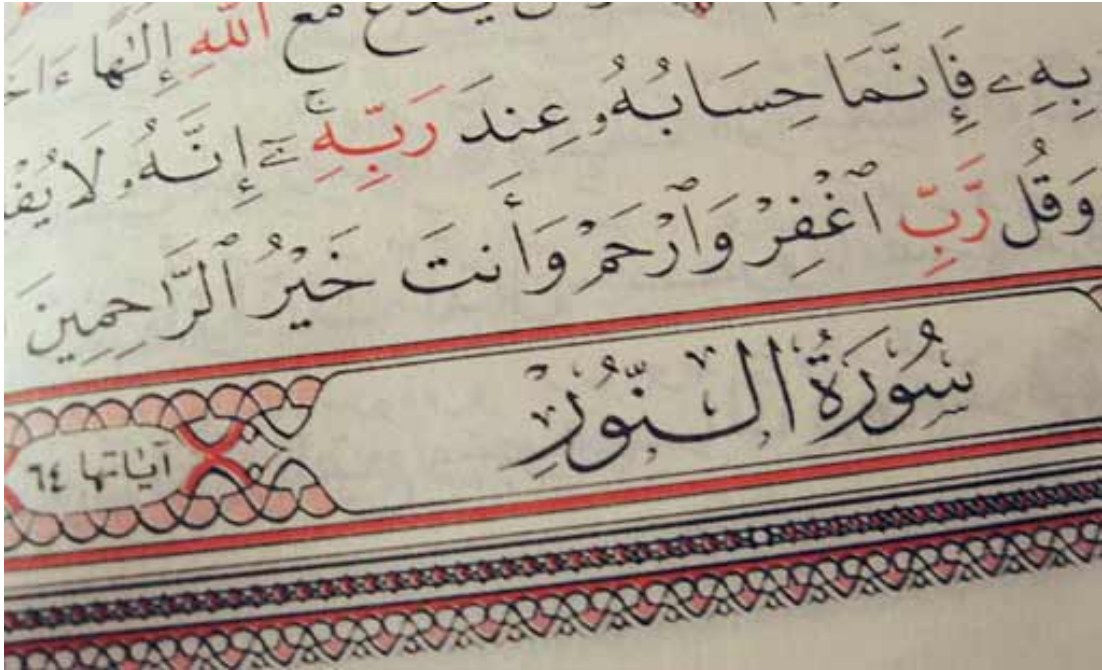 مَعَ اللَّهِ إِلَـٰهًا
بِهِۦ فَإِنَّمَا حِسَابُهُۥ عِندَ رَبِّهِۦٓ ۚ إِنَّهُۥ لَا
وَقُل رَّبِّ ٱغْفِرْ وَٱرْحَمْ وَأَنتَ خَيْرُ ٱلرَّٰحِمِينَ
سُورَةُ النُّورِ
آيَاتها ٦٤